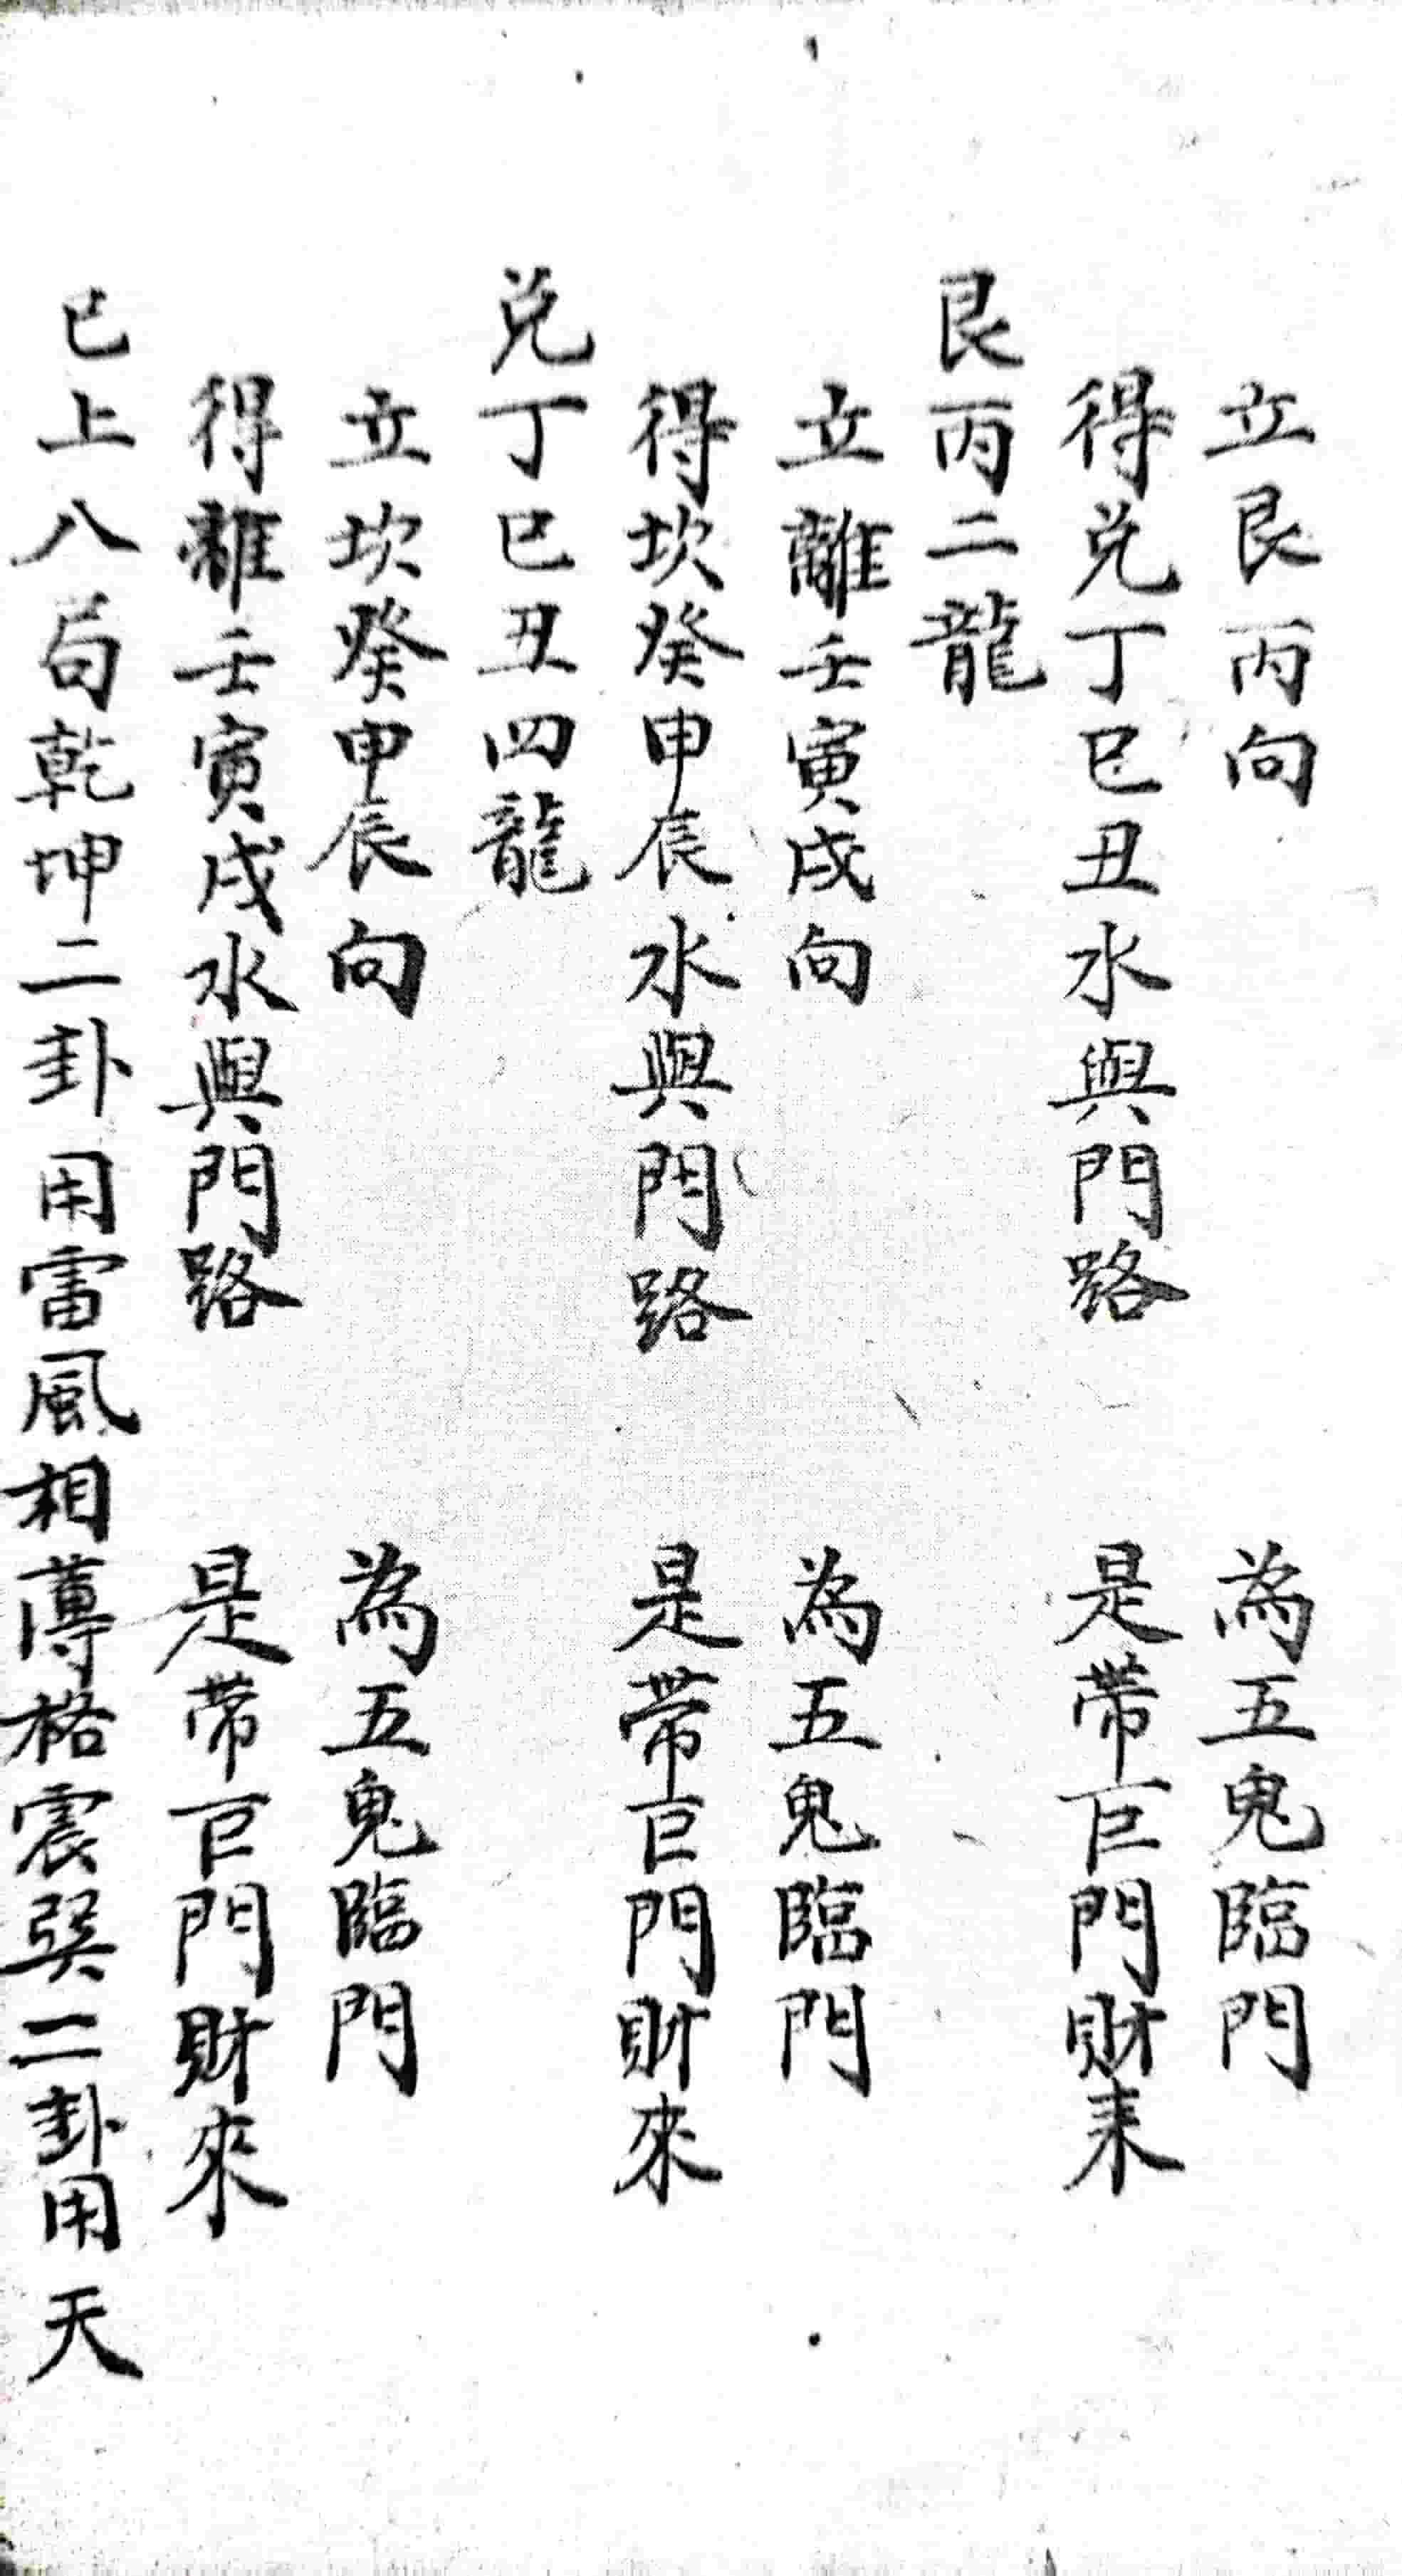 立艮丙向　為五鬼臨門
得兌丁巳丑水與門路　是帶巨門財来
艮丙二龍
立離壬寅戌向　為五鬼臨門
得坎癸申辰水與門路　是帶巨門財來
兌丁巳丑四龍
立坎癸申辰向　為五鬼臨門
得離壬寅戌水與門路　是帶巨門財來
已上八局乾坤二卦用雷風相薄格震巽二卦用天